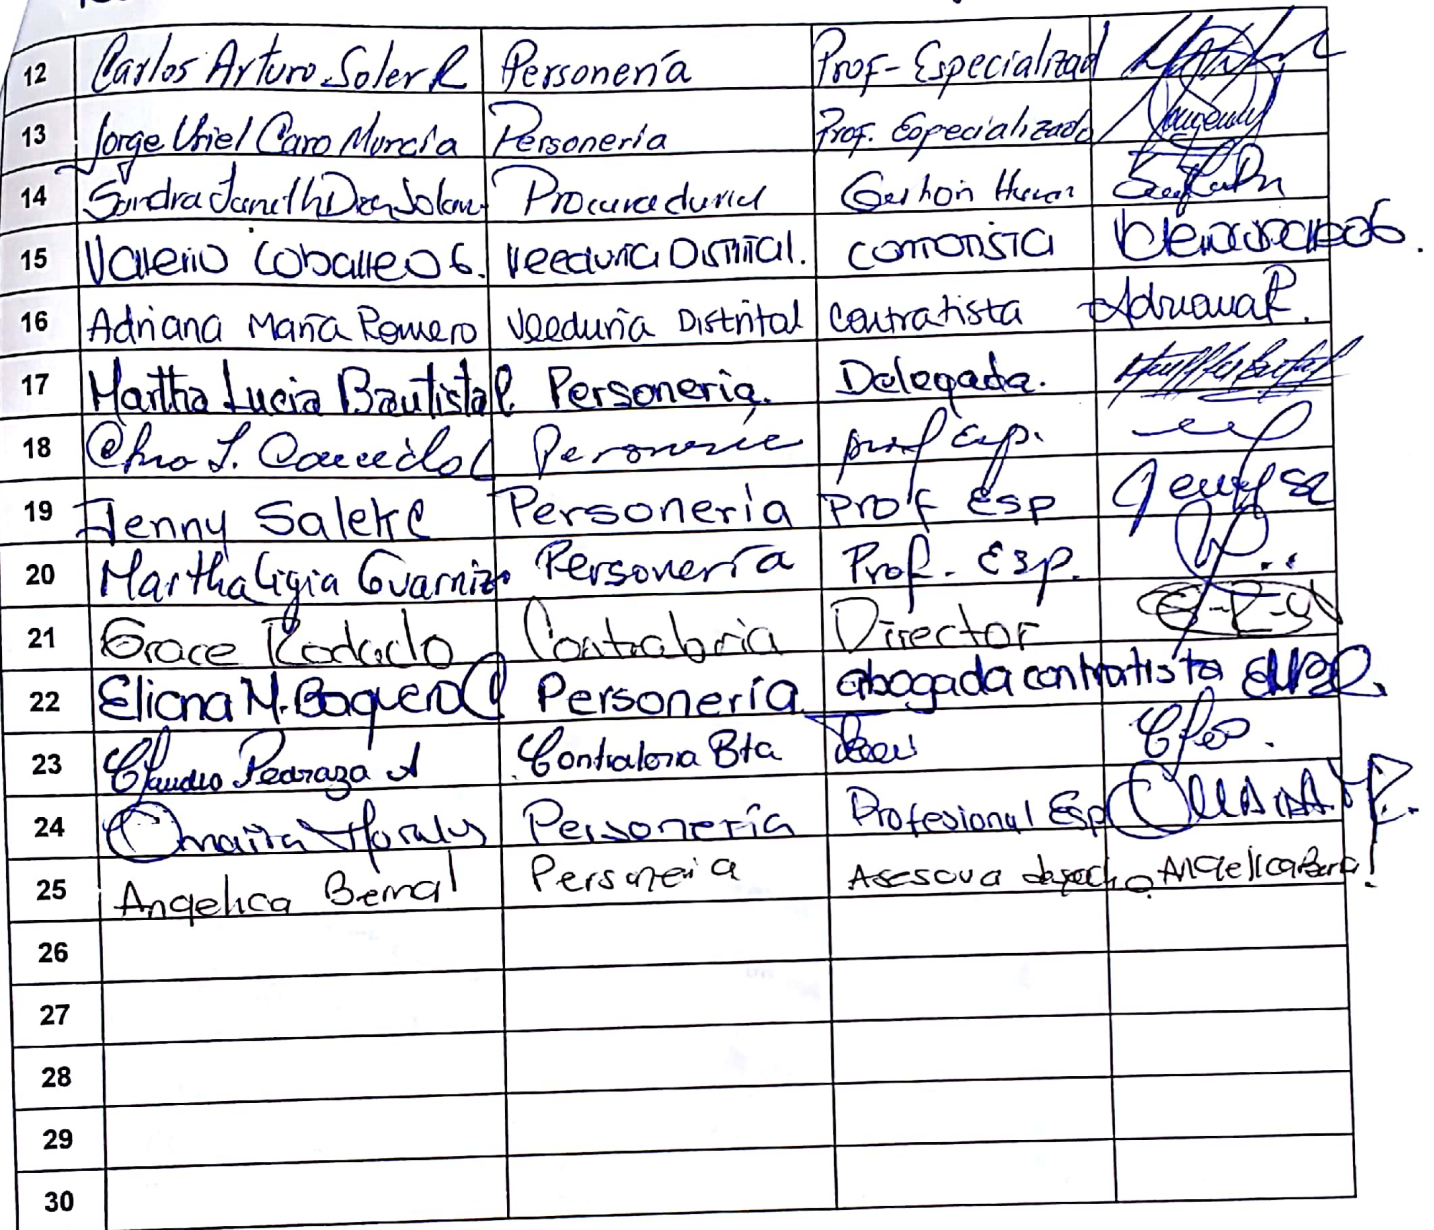 12 Carlos Arturo Soler R Personería Prof-Especializad
13 Jorge Uriel Caro Murcia Personeria Prof. Especializado
14 Sandra Janeth Procuraduria Gestion
15 Valerio Caballero G. Veeduria Distrital. contratista
16 Adriana María Romero Veeduría Distrital Contratista Adriana R.
17 Martha Lucia Bautista R Personeria. Delegada.
18 Personeria prof Esp.
19 Jenny Personería Prof Esp
20 Martha Ligia Guarnizo Personería Prof. Esp.
21 Grace Rodado Contraloria Director
22 Eliana M. Baquero Personería abogada contratista
23 Claudia Pedraza A Contraloria Bta
24 Omaira Morales Personería Profesional Esp
25 Angelica Bernal Personeria Asesora
26
27
28
29
30